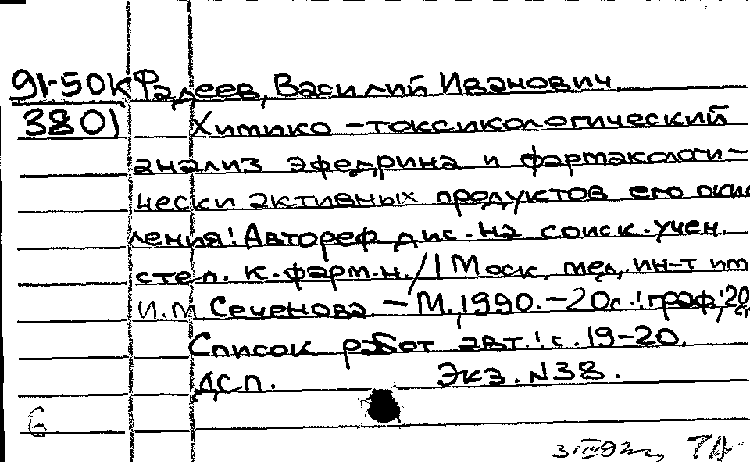 91-50к Фадеев, Василий Иванович.
3801 Химико-токсикологический
анализ эфедрина и фармакологи-
чески активных продуктов его окис
ления: Автореф дис. на соиск. учен.
степ. к. фарм. н. / 1 Моск. мед. ин-т им
И.М Сеченова. - М., 1990. - 20с.: граф; 20
Список работ авт.: с. 19-20.
ДСП. Экз. N38.